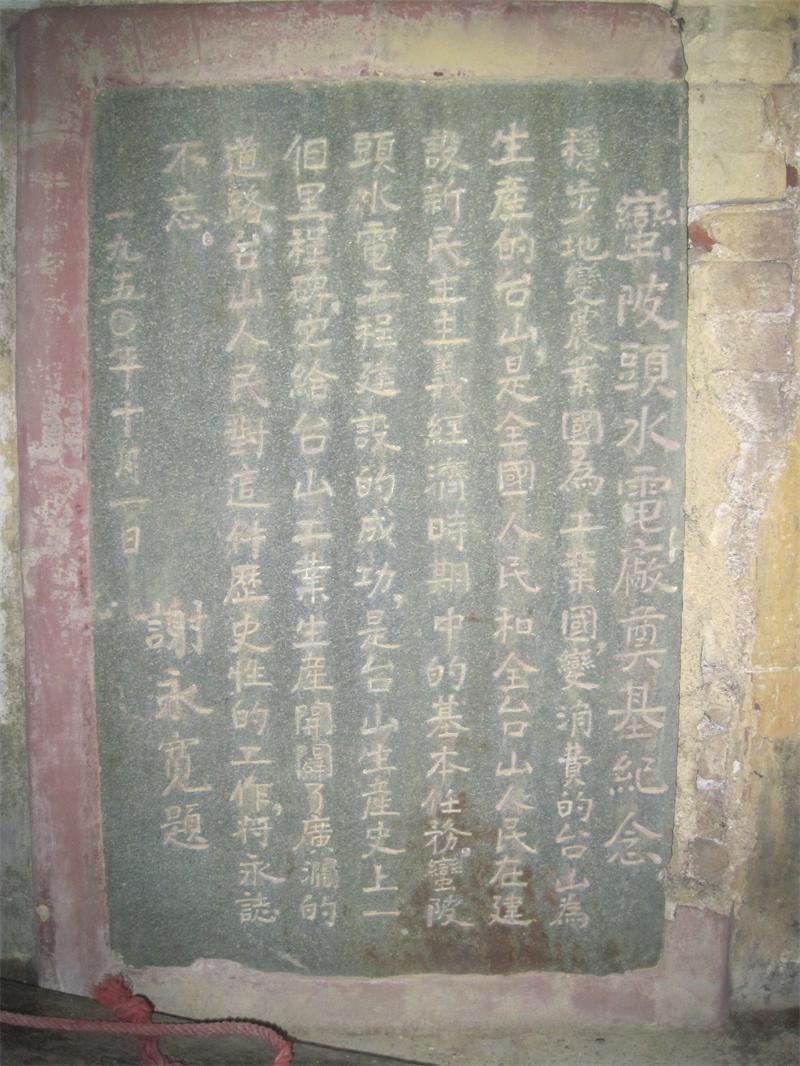 蠻陂頭水電廠奠基紀念
穩步地變農業國為工業國，變消費的台山為
生產的台山，是全國人民和全台山人民在建
設新民主主義經濟時期中的基本任務。蠻陂
頭水電工程建設的成功，是台山生產史上一
個里程碑，它給台山工業生產開闢了廣濶的
道路，台山人民對這件歷史性的工作，將永誌
不忘。
一九五〇年十月一日
謝永寬題